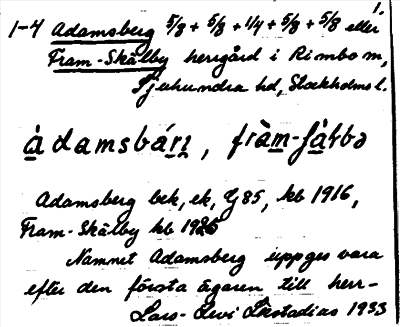 1.
1-4 Adamsberg 5/8 + 5/8 + 1/4 + 5/8 + 5/8 eller
Fram-Skälby herrgård i Rimbo sn,
Sjuhundra hd, Stockholms l.
àdamsbárı̣, fràm-ʃàlbə
Adamsberg bek, ek, GJ85, kb 1916,
Fram-Skälby kb 1926
Namnet Adamsberg uppges vara
efter den första ägaren till herr-
Lars-Levi Læstadius 1933